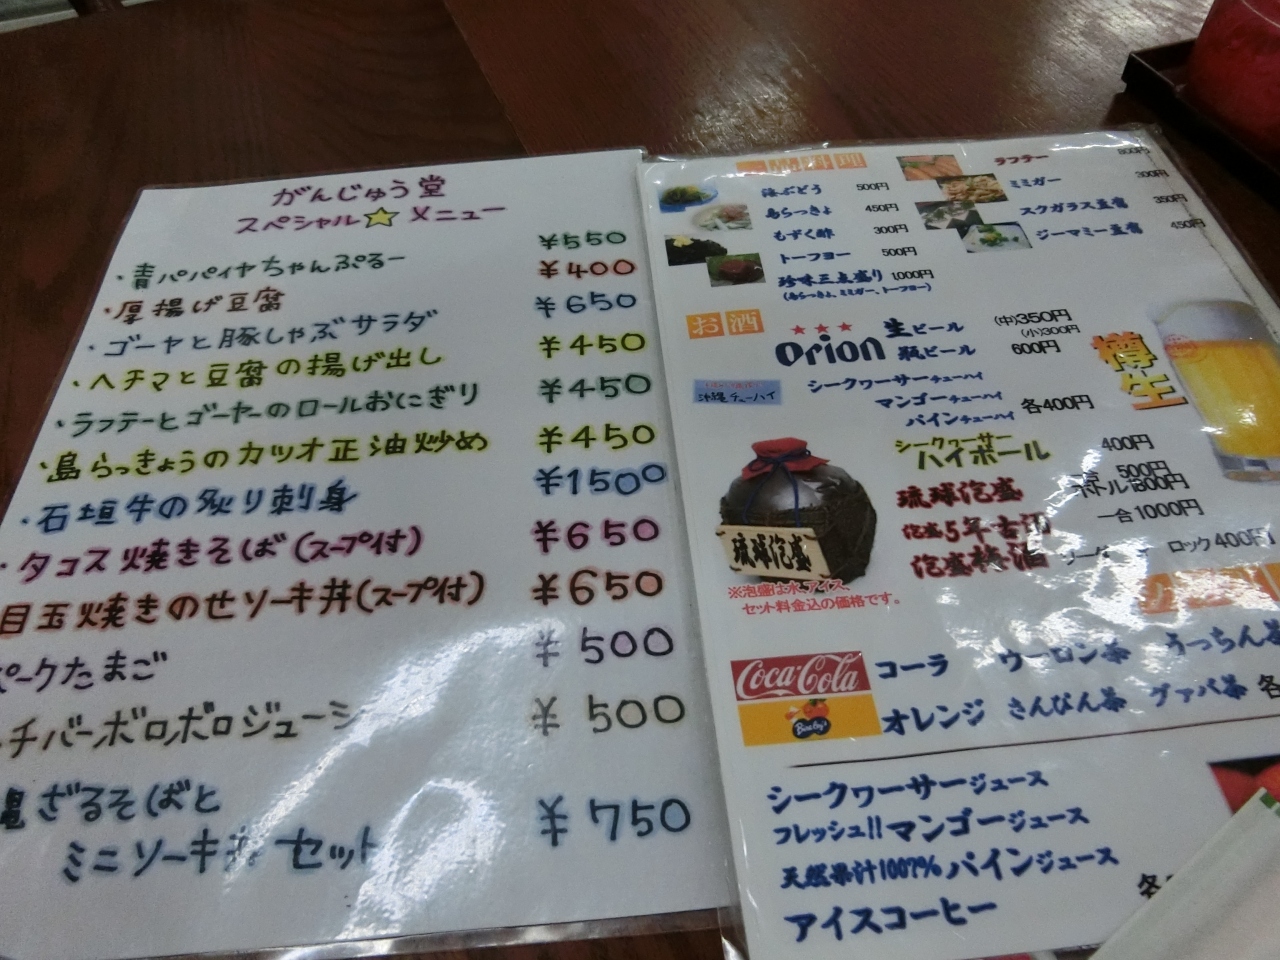 がんじゅう堂
スペシャル☆メニュー
・青パパイヤちゃんぷるー ¥550
・厚揚げ豆腐 ¥400
・ゴーヤと豚しゃぶサラダ ¥650
・ヘチマと豆腐の揚げ出し ¥450
・ラフテーとゴーヤーのロールおにぎり ¥450
・島らっきょうのカツオ正油炒め ¥450
・石垣牛の炙り刺身 ¥1500
・タコス焼きそば(スープ付) ¥650
目玉焼きのせソーキ丼(スープ付) ¥650
ークたまご ¥500
チバーボロボロジューシ ¥500
ざるそばと
ミニソーキ丼 セット ¥750
料理
海ぶどう 500円
島らっきょ 450円
もずく酢 300円
トーフヨー 500円
珍味三点盛り 1,000円
(島らっきょ、ミミガー、トーフヨー)
ラフテー
ミミガー 300円
スクガラス豆腐 350円
ジーマミー豆腐 450円
お酒
orion 生ビール (中)350円
(小)300円
瓶ビール 600円
樽生
沖縄チューハイ
シークヮーサーチューハイ
マンゴーチューハイ
パインチューハイ 各400円
シークヮーサー
ハイボール 400円
琉球泡盛 500円
ボトル1800円
泡盛5年古酒 一合1000円
泡盛梅酒 ロック400円
琉球泡盛
※泡盛は水、アイス、
セット料金込の価格です。
Coca-Cola
コーラ ウーロン茶 うっちん茶
オレンジ さんぴん茶 グァバ茶 各
シークヮーサージュース
フレッシュ!!マンゴージュース
天然果汁100%パインジュース
アイスコーヒー 各